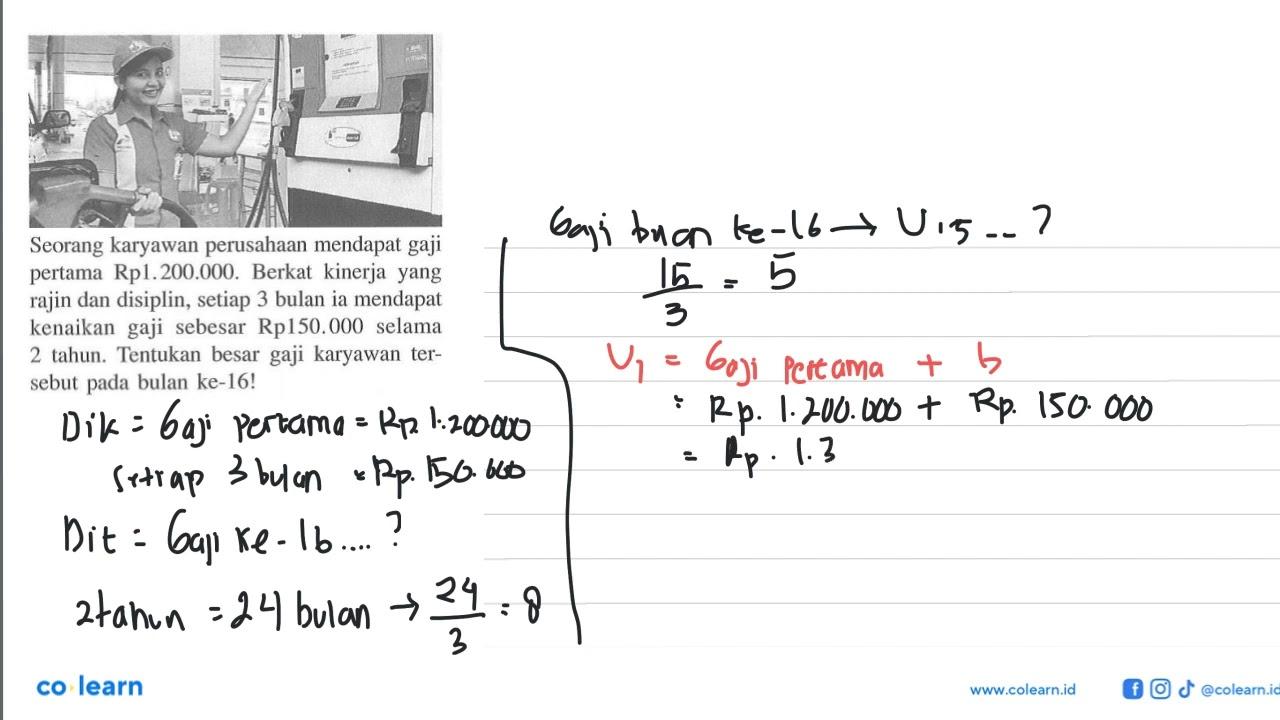 Seorang karyawan perusahaan mendapat gaji
pertama Rp1.200.000. Berkat kinerja yang
rajin dan disiplin, setiap 3 bulan ia mendapat
kenaikan gaji sebesar Rp150.000 selama
2 tahun. Tentukan besar gaji karyawan ter-
sebut pada bulan ke-16!
Dik = Gaji pertama = Rp. 1.200.000
Setiap 3 bulan = Rp. 150.000
Dit = Gaji ke-16....?
2 tahun = 24 bulan → 24/3 = 8
Gaji bulan ke-16 → U15 ...?
15/3 = 5
U1 = Gaji Pertama + b
= Rp. 1.200.000 + Rp. 150.000
= Rp. 1.3
co learn
www.colearn.id
@colearn.id